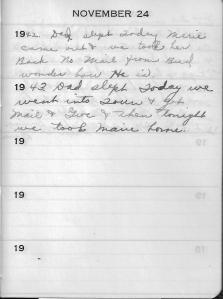 NOVEMBER 24
1942 Dad slept Today Marie
came out & we took her
Back No Mail from Bud
wonder how He is.
1943 Dad slept Today we
went into Town & got
Mail & & then tonight
we took Marie home.
19
19
19